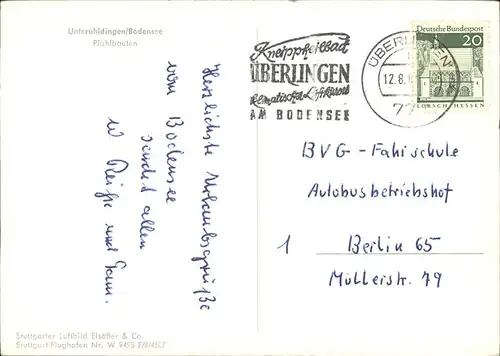 Unteruhldingen/Bodensee
Pfahlbauten
Kneippheilbad
ÜBERLINGEN
klimatischer Luftkurort
AM BODENSEE
ÜBERLINGEN
12.8.
77
Deutsche Bundespost
20
LORSCH-HESSEN
Herzlichste Urlaubsgrüße
vom Bodensee
sendet allen
W. und Fam.
BVG-Fahrschule
Autobusbetriebshof
1 Berlin 65
Müllerstr. 79
Stuttgarter Luftbild Elsäßer & Co.
Stuttgart-Flughafen Nr. W